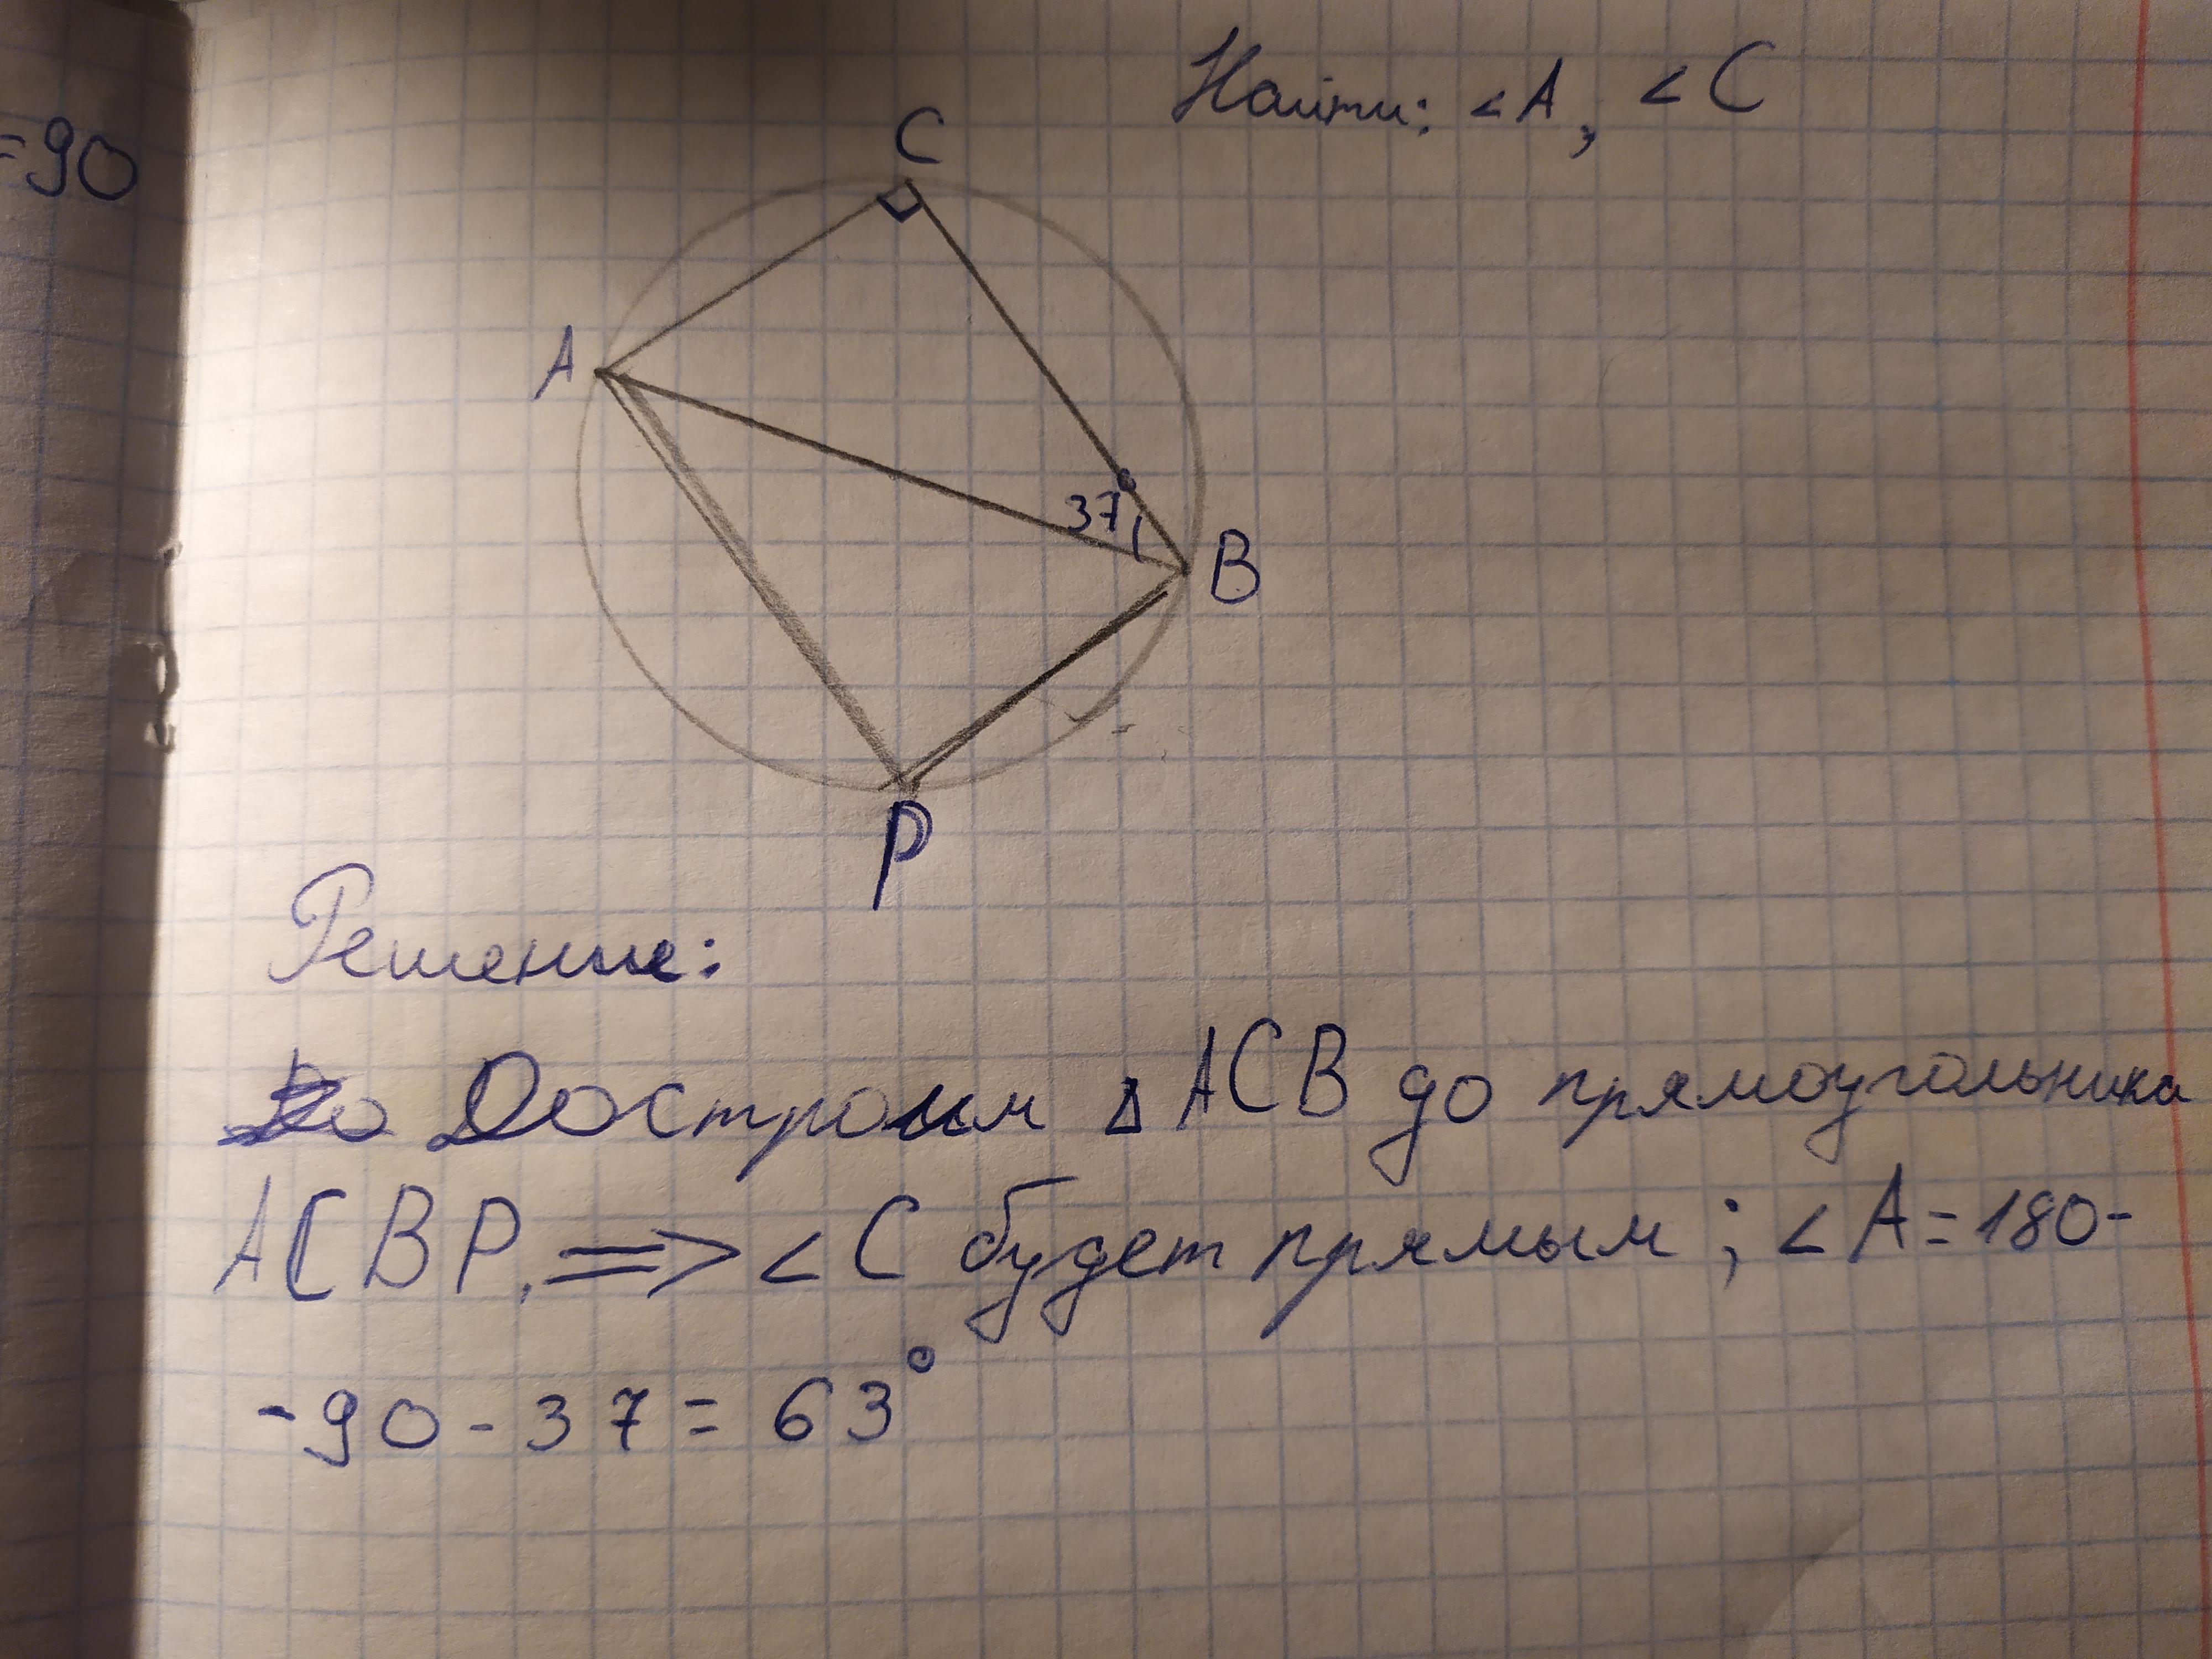 =90
Найти: <A, <C
C
A
37°
B
P
Решение:
Достроим ∆ ACB до прямоугольника
ACBP, => <C будет прямым; <A=180-
-90-37=63°